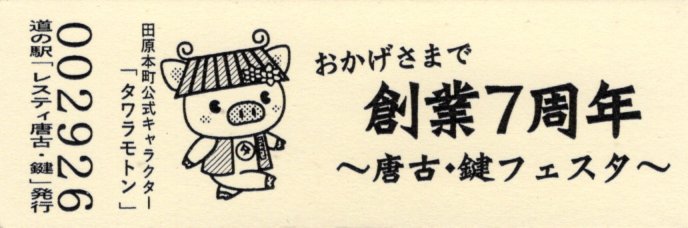 おかげさまで
創業7周年
～唐古・鍵フェスタ～
田原本町公式キャラクター
「タワラモトン」
002926
道の駅「レスティ唐古・鍵」発行